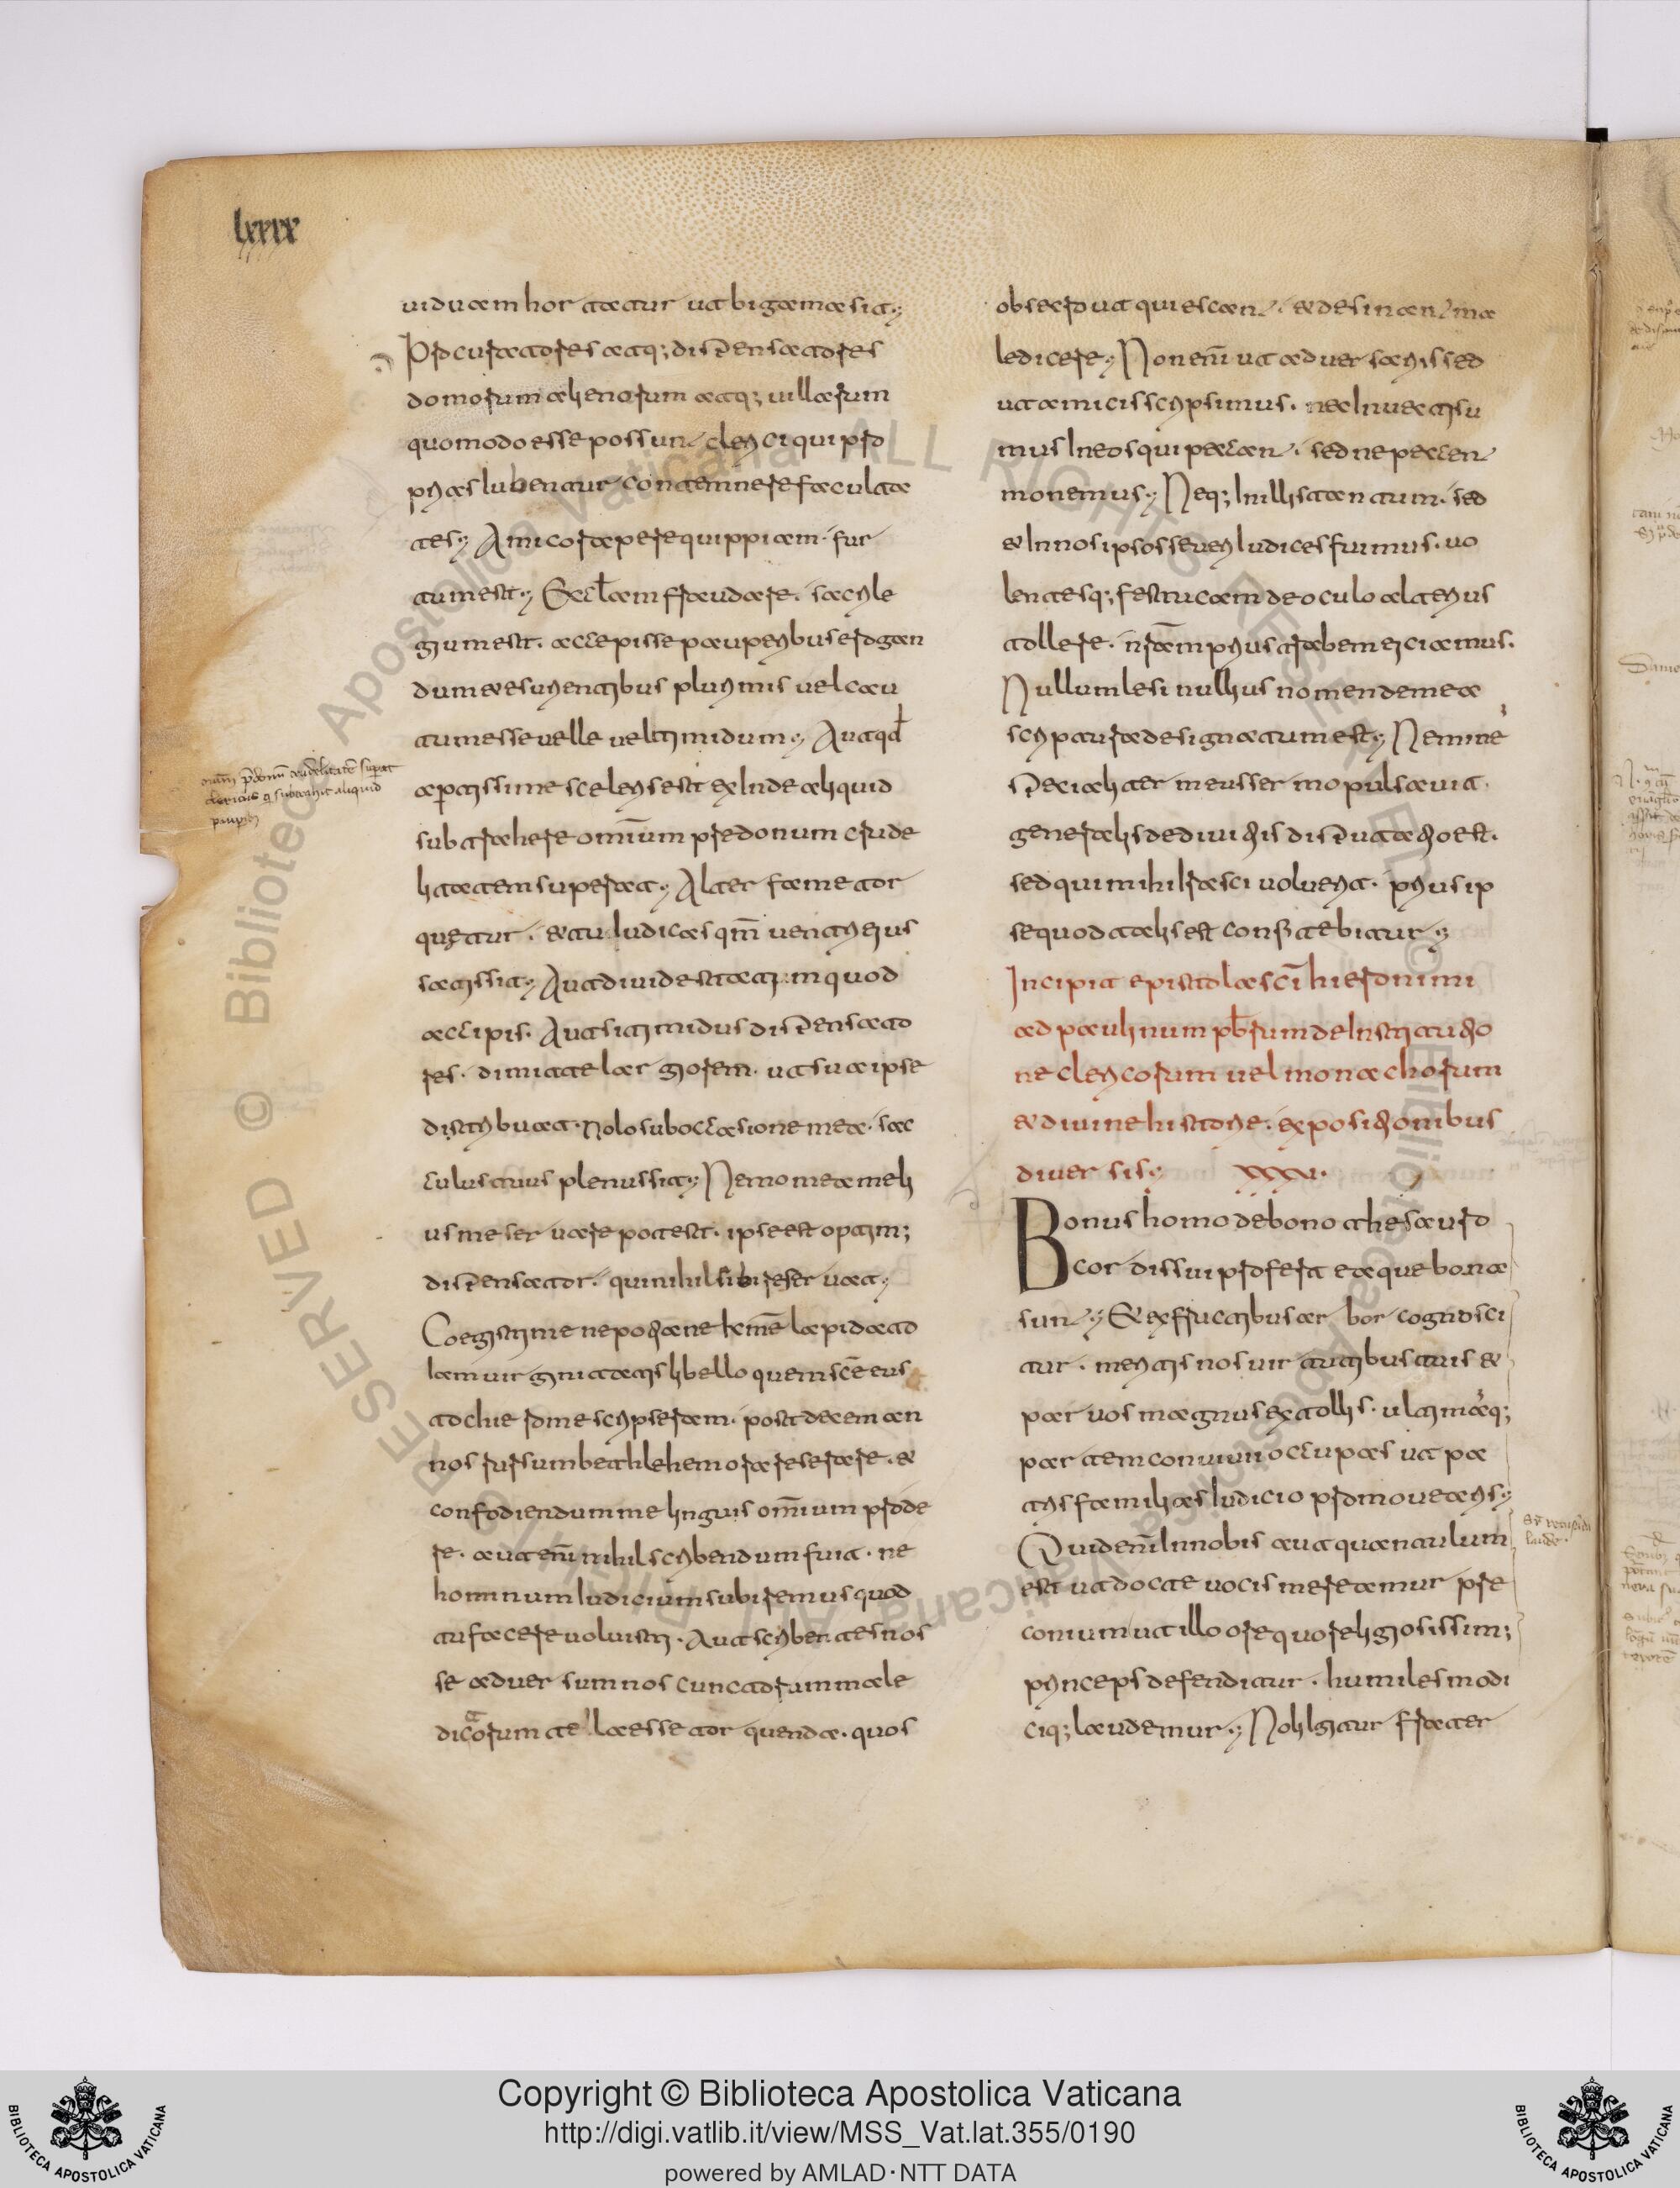 lxxxx
uiduam hortatur ut bigama sit;
Procuratores atq; dispensatores
domorum alienorum atq; uillarum
quomodo esse possunt clerici qui pro
prias iubentur contemnere faculta
tes; Amico rapere quippiam. fur
tum est; Eccłam fraudare. sacrile
gium est. accepisse pauperibus erogan
dum et esurientibus plurimis uel cau
tum esse uelle uel timidum; Aut qđ
apertissime sceleris est exinde aliquid
subtrahere omiūm predonum crude
litatem superat; Alter fame tor
quetur. et tu iudicas qm̄ uentri eius
satis sit; Aut diuide statim quod
accipis. Aut si timidus dispensato
res. dimitte largiorem. ut sua ipse
distribuat. nolo sub occasione mea. sac
culus tuus plenus sit; Nemo mea meli
us me seruare potest. ipse est optim;
dispensator. qui nihil sibi reseruat;
Coegisti me nepotiane karme lapidato
iam uirginitatis libello quem sce eus
tochie rome scripseram. post decem an
nos rursum bethlehem ora reserare. et
confodiendum me linguis omīum prode
re. aut enī nihil scribendum fuit. ne
hominum iudicium subiremus quod
tu facere uoluisti. Aut scribentes nos
se aduersum nos cunctorum male
dicorum tela esse torquenda. quos
obsecro ut quiescant. et desinant ma
ledicere; Non enī ut aduersariis sed
ut amicis scripsimus. nec inuecti su
mus in eos qui peccant. sed ne peccent
monemus; Neq; in illis tantum. sed
et in nos ipsos seueri iudices fuimus. uo
lentesq; festucam de oculo alterius
tollere. nr̄am prius trabem eiciamus.
Nullum lesi nullius nomen de mea
scriptura designatum est; Nemine
specialiter meus sermo pulsauit.
generalis de diuitiis disputatio est.
sed qui mihi irasci uoluerit. prius ip
se quod talis est confitebitur;
Incipit epistola sc̄i hieronimi
ad paulinum pb̄rum de institutio
ne clericorum uel monachorum
et diuine historie. expositionibus
diuersis; xxxv.
Bonus homo de bono thesauro
cor dis sui profert ea que bona
sunt; Et ex fructibus arbor cognosci
tur. meritis nos uir tutibus tuis et
paruos magnus extollis. ultimāq;
partem conuiuii occupas ut pa
tris familias iudicio promouearis;
Quid enī in nobis aut quantulum
est ut docte uocis mereamur pre
conium ut illo ore quo religiosissim;
princeps defenditur. humiles modi
ciq; laudemur; Noli igitur frater